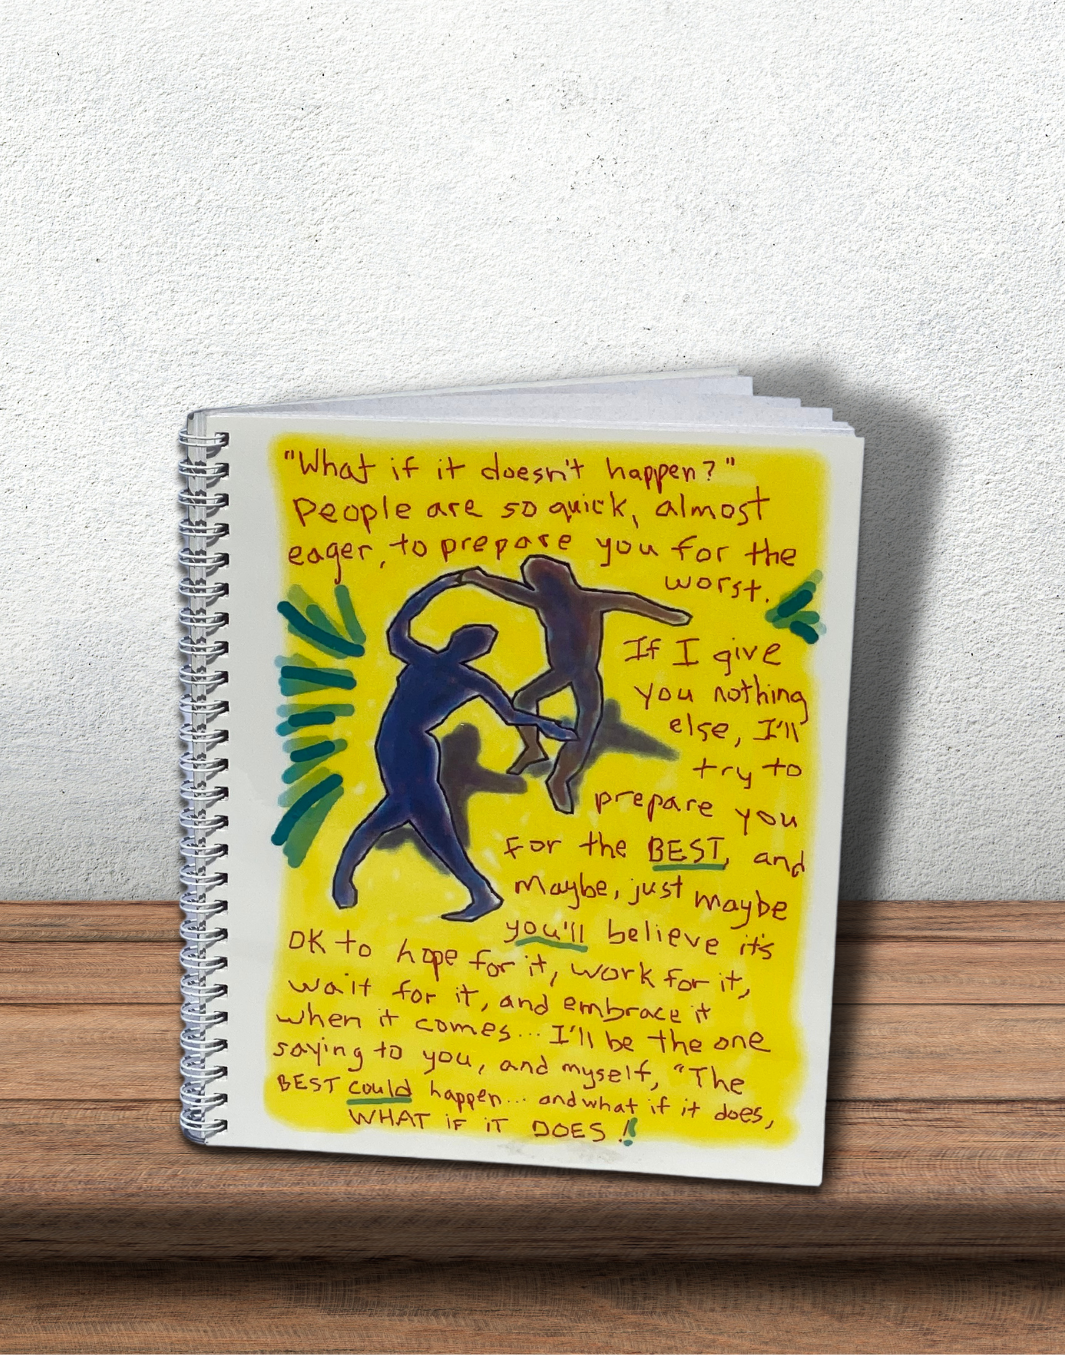 "What if it doesn't happen?"
People are so quick, almost
eager, to prepare you for the
worst.
If I give
you nothing
else, I'll
try to
prepare you
for the BEST, and
maybe, just maybe
you'll believe it's
OK to hope for it, work for it,
wait for it, and embrace it
when it comes... I'll be the one
saying to you, and myself, "The
BEST could happen... and what if it does,
WHAT iF iT DOES!